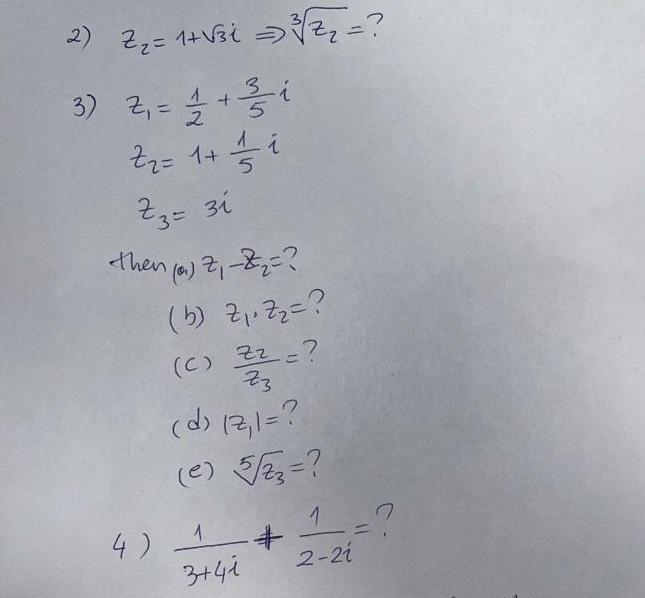 2) z₂ = 1+√3i ⇒ ∛z₂ = ?
3) z₁ = 1/2 + 3/5 i
z₂ = 1 + 1/5 i
z₃ = 3i
then (a) z₁ - z₂ = ?
(b) z₁ · z₂ = ?
(c) z₂/z₃ = ?
(d) |z₁| = ?
(e) ⁵√z₃ = ?
4) 1/(3+4i) + 1/(2-2i) = ?